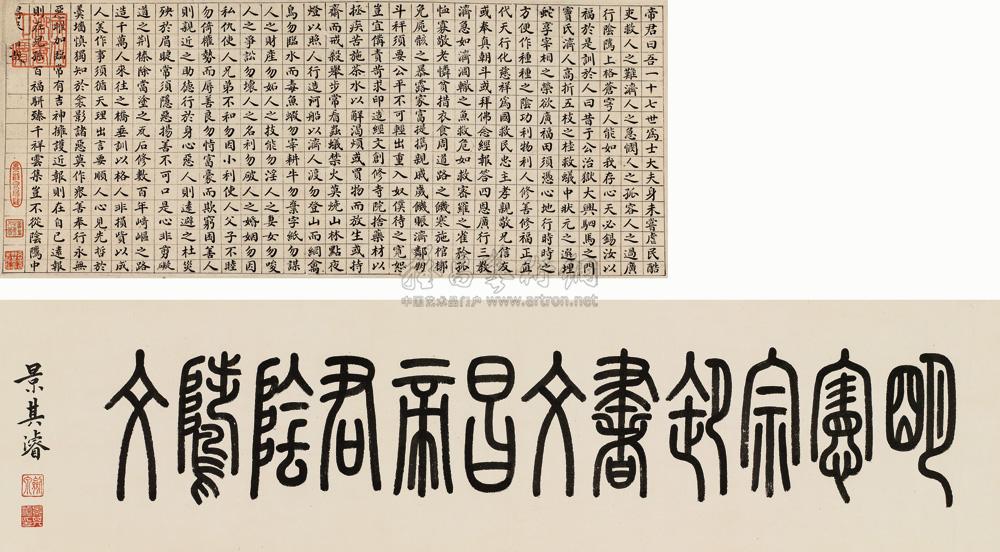 帝君曰吾一十七世為士大夫身未嘗虐民酷
吏救人之難濟人之急憫人之孤容人之過廣
行陰騭上格蒼穹人能如我存心天必錫汝以
福於是訓於人曰昔于公治獄大興駟馬之門
竇氏濟人高折五枝之桂救蟻中狀元之選埋
蛇享宰相之榮欲廣福田須憑心地行時時之
方便作種種之陰功利物利人修善修福正直
代天行化慈祥為國救民忠主孝親敬兄信友
或奉真朝斗或拜佛念經報答四恩廣行三教
濟急如濟涸轍之魚救危如救密羅之雀矜孤
恤寡敬老憐貧措衣食周道路之饑寒施棺槨
免屍骸之暴露家富提攜親戚歲饑賑濟鄰朋
斗秤須要公平不可輕出重入奴僕待之寬恕
豈宜備責苛求印造經文創修寺院捨藥材以
拯疾苦施茶水以解渴煩或買物而放生或持
齋而戒殺舉步常看蟲蟻禁火莫燒山林點夜
燈以照人行造河船以濟人渡勿登山而網禽
鳥勿臨水而毒魚蝦勿宰耕牛勿棄字紙勿謀
人之財產勿妒人之技能勿淫人之妻女勿唆
人之爭訟勿壞人之名利勿破人之婚姻勿因
私仇使人兄弟不和勿因小利使人父子不睦
勿倚權勢而辱善良勿恃富豪而欺窮困善人
則親近之助德行於身心惡人則遠避之杜災
殃於眉睫常須隱惡揚善不可口是心非剪礙
道之荊榛除當塗之瓦石修數百年崎嶇之路
造千萬人來往之橋垂訓以格人非捐貲以成
人美作事須循天理出言要順人心見先哲於
羹墻慎獨知於衾影諸惡莫作眾善奉行永無
惡曜加臨常有吉神擁護近報則在自己遠報
則在兒孫百福駢臻千祥雲集豈不從陰騭中
得來
中国艺术品门户 www.artron.net
明憲宗書文昌帝君陰騭文
景其濬